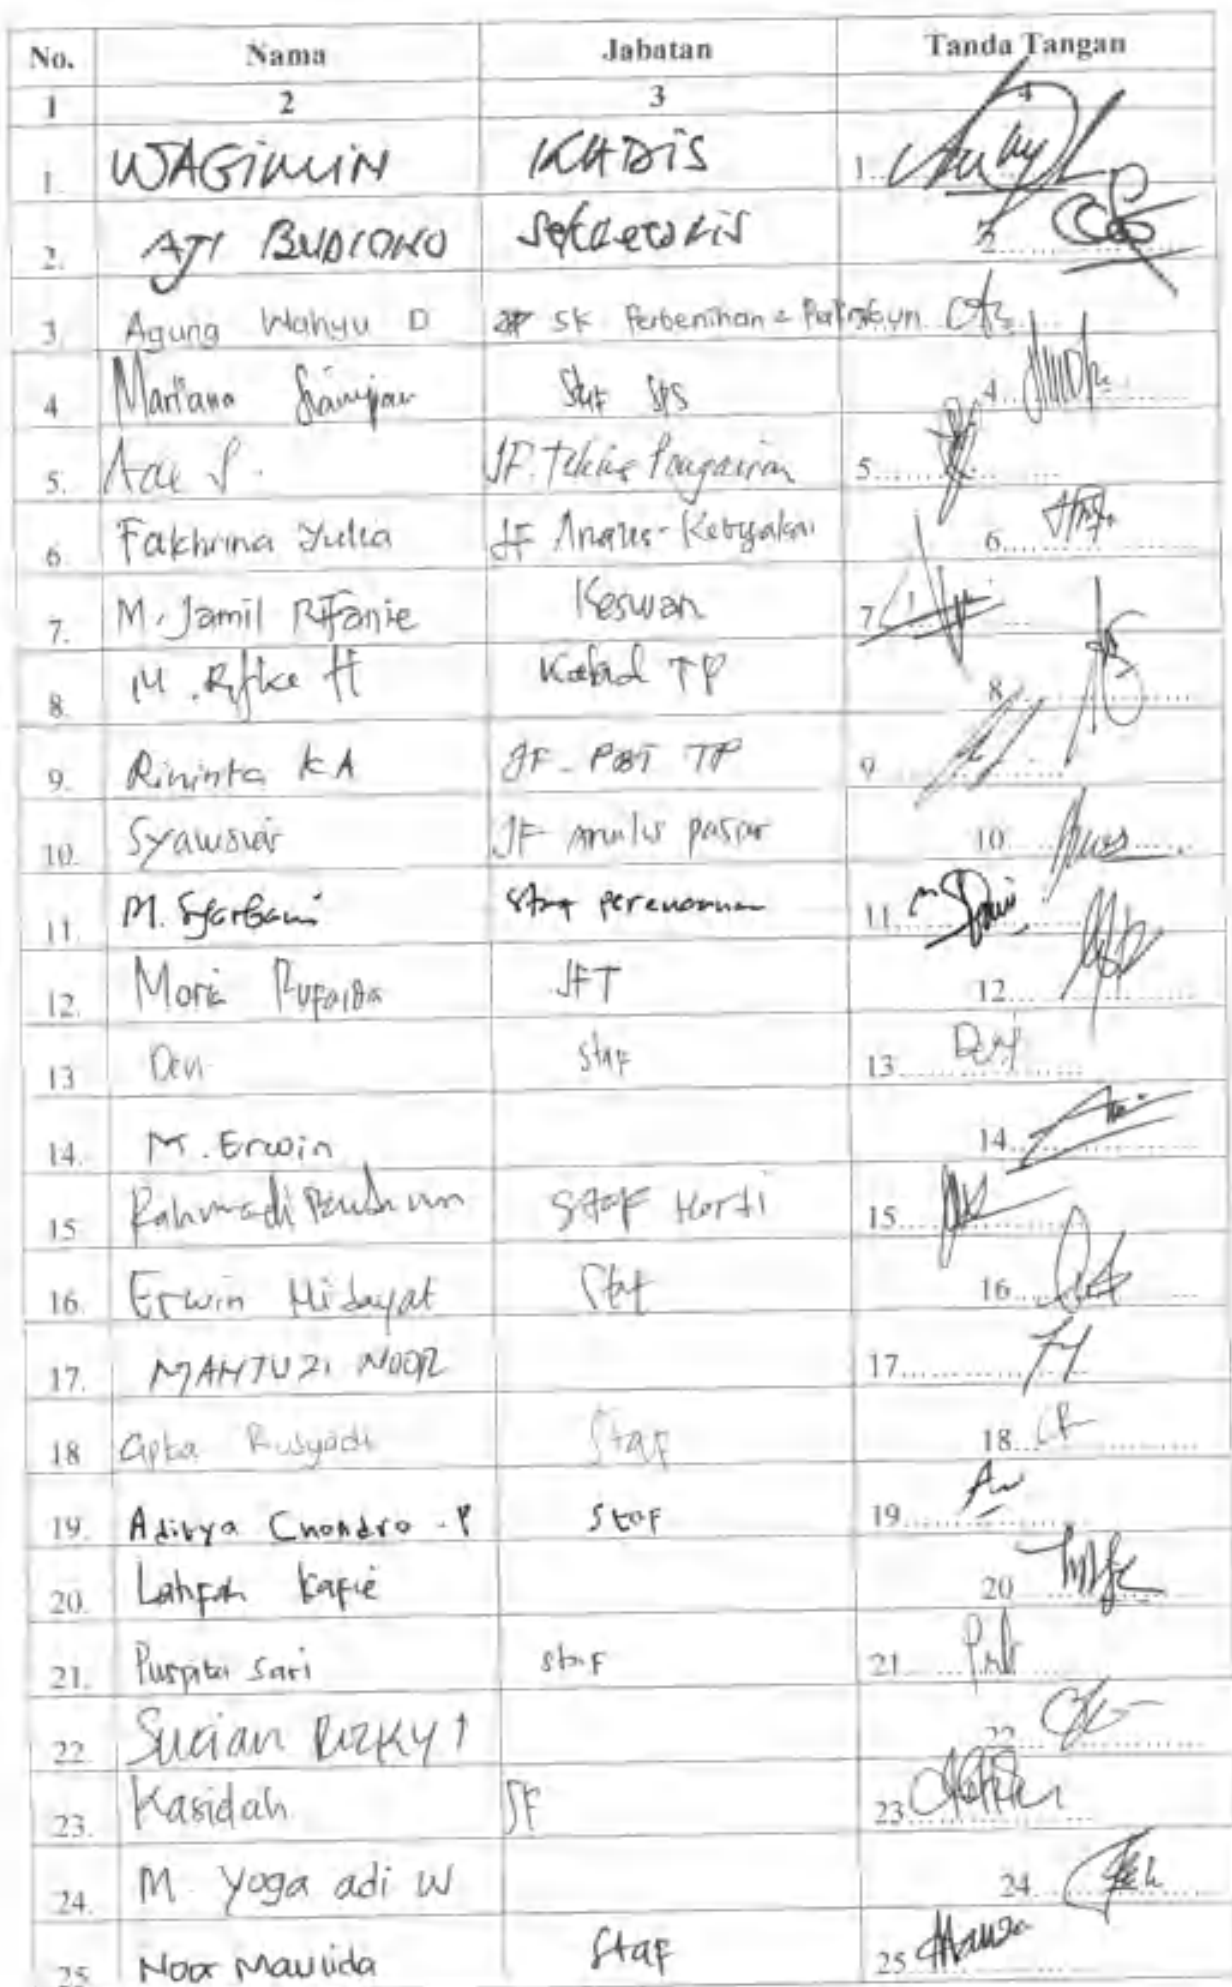 No. Nama Jabatan Tanda Tangan
1 2 3 4
1. WAGIMIN KADIS 1.
2. AJI BUDIONO Sekretaris 2.
3. Agung Wahyu D SK Perbenihan &
4. Mariana Staf 4.
5. JF. Teknis Pengairan 5.
6. Fakhrina Yulia JF Analis Kebijakan 6.
7. M. Jamil Rifanie Keswan 7
8. M. Rifke H Kabid TP 8
9. Rininta KA JF. PBT TP 9
10. Syawswir JF analis pasar 10.
11. M. Syarbani Staf perencanaan 11.
12. Moria Rufaida JFT 12.
13. Den Staf 13.
14. M. Erwin 14.
15. Rahmadi Staf Horti 15.
16. Erwin Hidayat Staf 16.
17. MAHTUZI NOOR 17.
18 Cipta Rusyadi Staf 18.
19. Aditya Chondro . P Staf 19.
20. Kafie 20
21. Puspita Sari Staf 21.
22. Sucian RIZKY 22
23. Kasidah JF 23
24. M. Yoga adi W 24.
25 Noor Maulida Staf 25